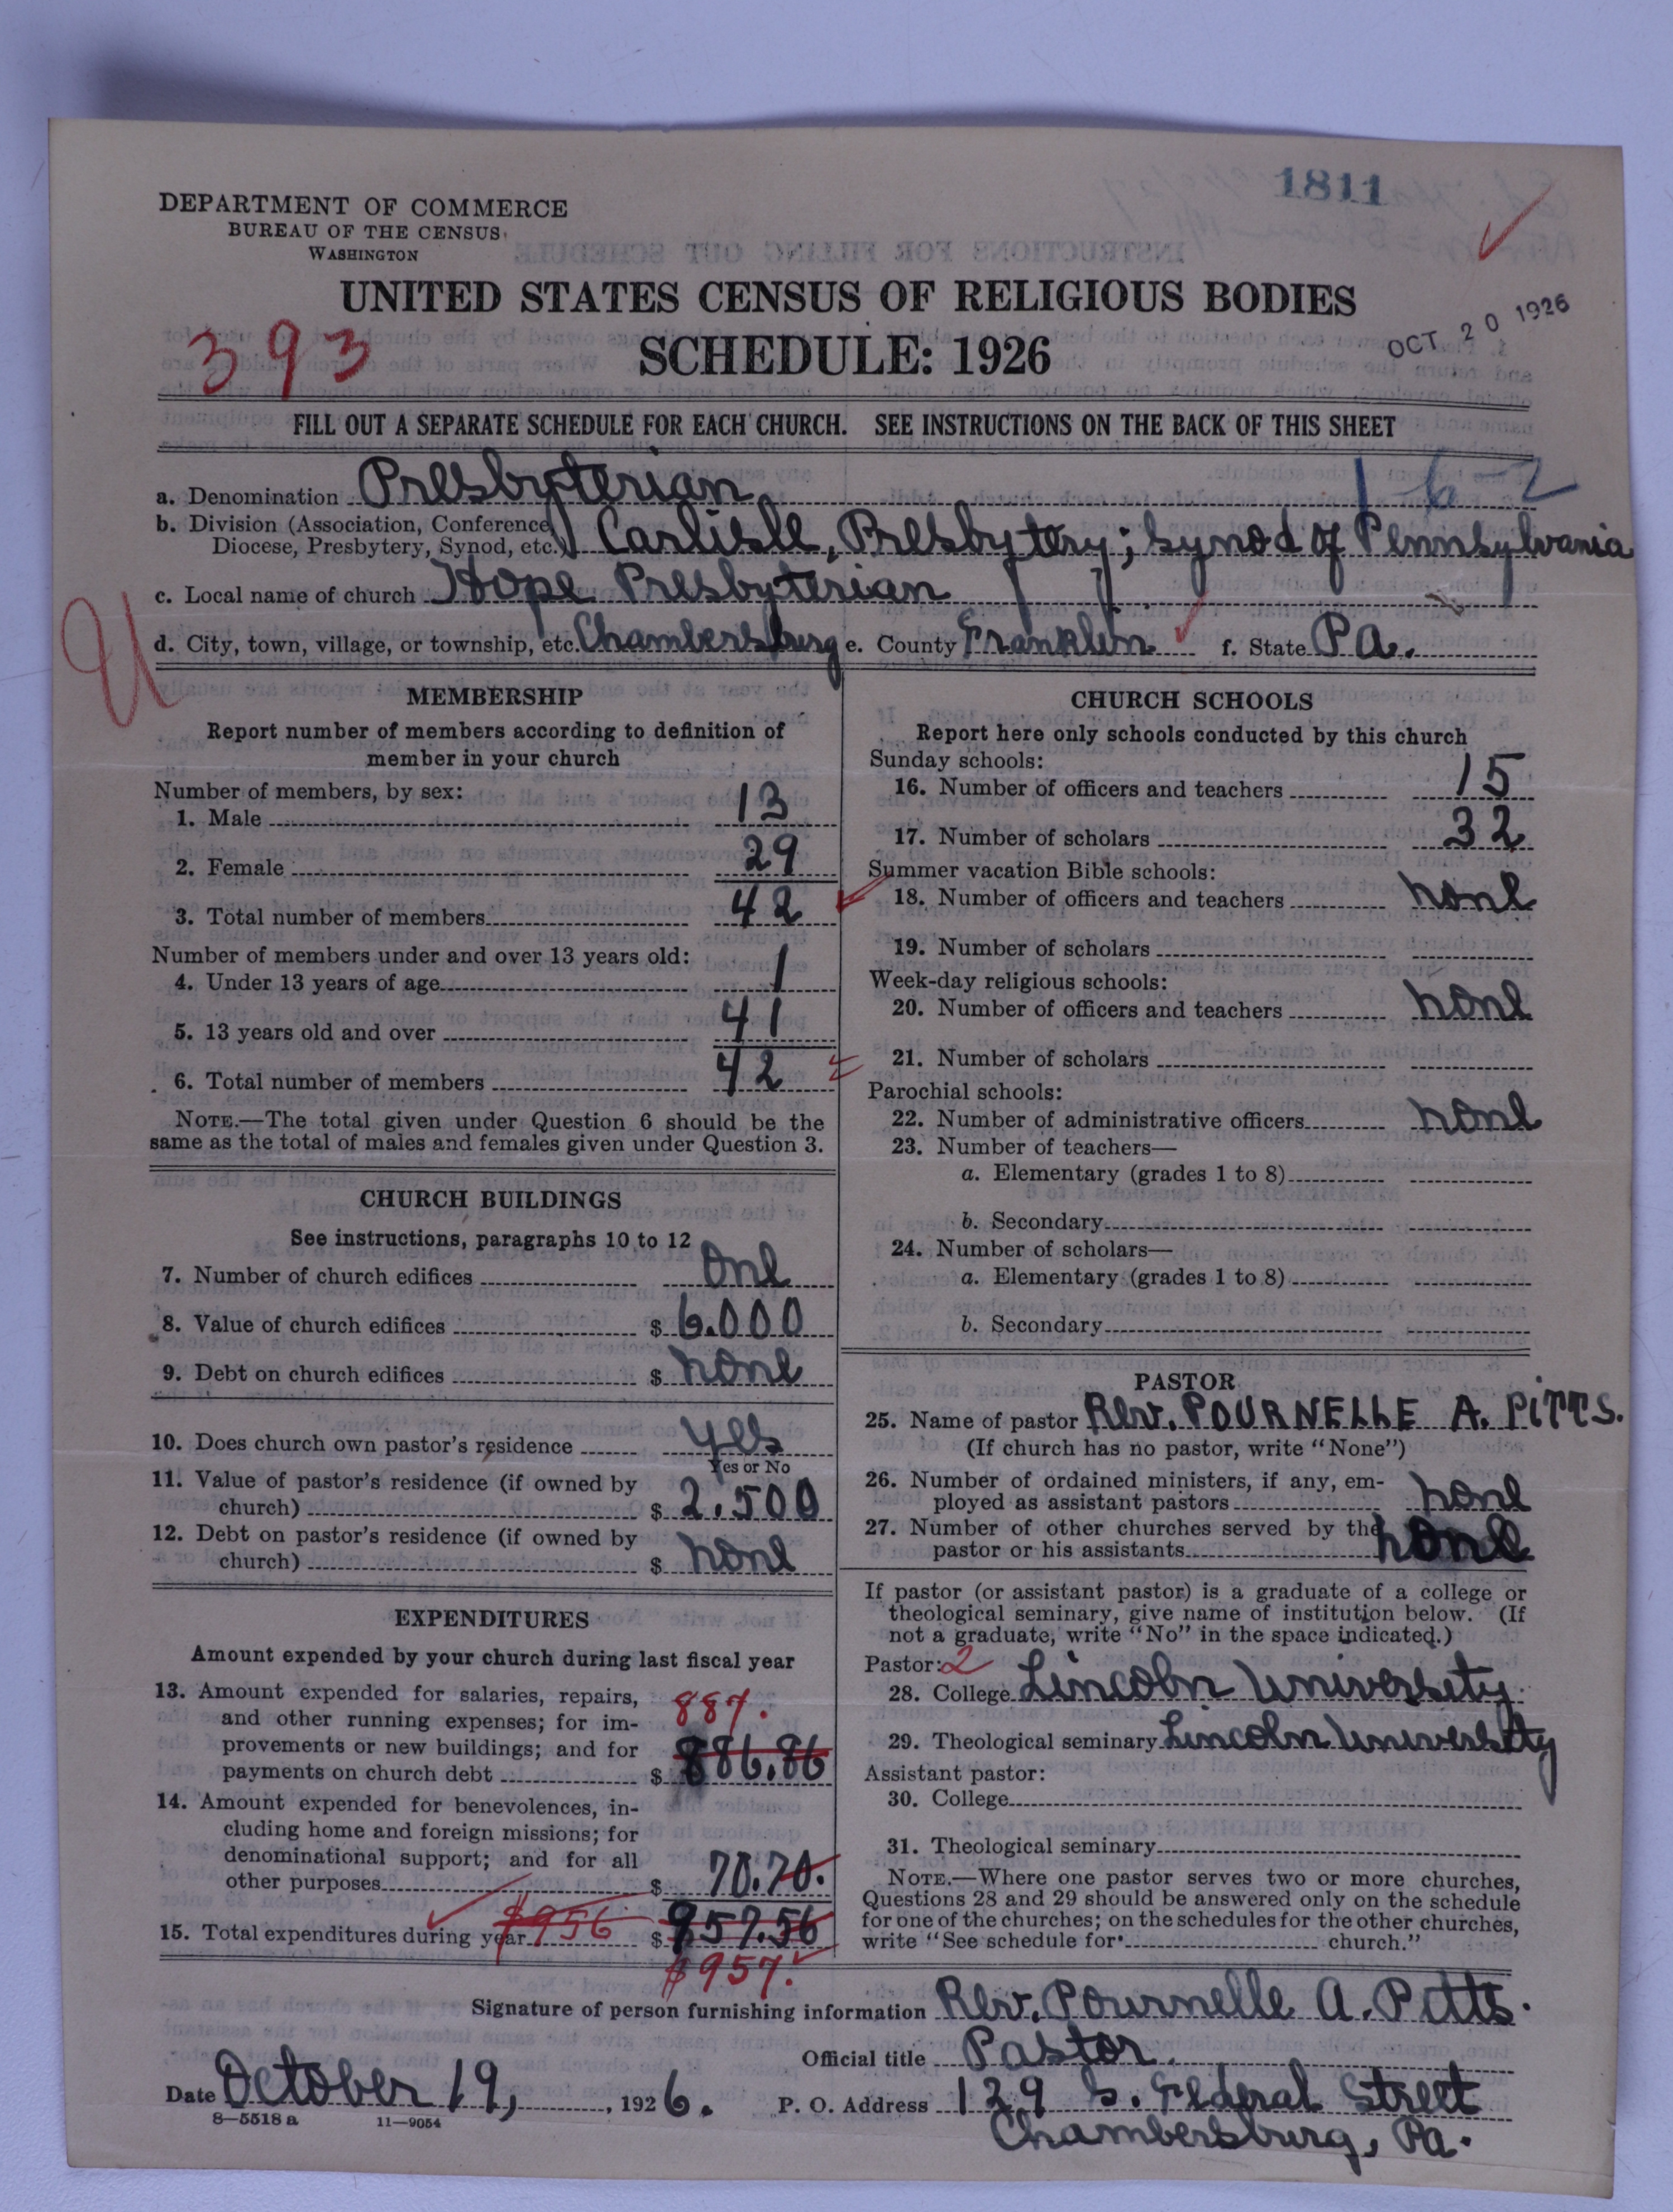 1811
DEPARTMENT OF COMMERCE
BUREAU OF THE CENSUS
WASHINGTON
UNITED STATES CENSUS OF RELIGIOUS BODIES
SCHEDULE: 1926
OCT 20 1926
393
FILL OUT A SEPARATE SCHEDULE FOR EACH CHURCH. SEE INSTRUCTIONS ON THE BACK OF THIS SHEET
1-6-2
a. Denomination Presbyterian
b. Division (Association, Conference,
Diocese, Presbytery, Synod, etc.) Carlisle, Presbytery; Synod of Pennsylvania
c. Local name of church Hope Presbyterian
U
d. City, town, village, or township, etc. Chambersburg e. County Franklin f. State Pa.
MEMBERSHIP
Report number of members according to definition of
member in your church
Number of members, by sex:
1. Male 13
2. Female 29
3. Total number of members 42
Number of members under and over 13 years old:
4. Under 13 years of age 1
5. 13 years old and over 41
6. Total number of members 42
NOTE.—The total given under Question 6 should be the
same as the total of males and females given under Question 3.
CHURCH BUILDINGS
See instructions, paragraphs 10 to 12
7. Number of church edifices one
8. Value of church edifices $ 6.000
9. Debt on church edifices $ none
10. Does church own pastor's residence yes
Yes or No
11. Value of pastor's residence (if owned by
church) $ 2.500
12. Debt on pastor's residence (if owned by
church) $ none
EXPENDITURES
Amount expended by your church during last fiscal year
13. Amount expended for salaries, repairs,
and other running expenses; for im- 887.
provements or new buildings; and for
payments on church debt $ 886.86
14. Amount expended for benevolences, in-
cluding home and foreign missions; for
denominational support; and for all
other purposes $ 70.70.
15. Total expenditures during year $956 $ 957.56
$957.
CHURCH SCHOOLS
Report here only schools conducted by this church
Sunday schools:
16. Number of officers and teachers 15
17. Number of scholars 32
Summer vacation Bible schools:
18. Number of officers and teachers none
19. Number of scholars
Week-day religious schools:
20. Number of officers and teachers none
21. Number of scholars
Parochial schools:
22. Number of administrative officers none
23. Number of teachers—
a. Elementary (grades 1 to 8)
b. Secondary
24. Number of scholars—
a. Elementary (grades 1 to 8)
b. Secondary
PASTOR
25. Name of pastor Rev. POURNELLE A. PITTS.
(If church has no pastor, write "None")
26. Number of ordained ministers, if any, em-
ployed as assistant pastors none
27. Number of other churches served by the
pastor or his assistants none
If pastor (or assistant pastor) is a graduate of a college or
theological seminary, give name of institution below. (If
not a graduate, write "No" in the space indicated.)
Pastor: 2
28. College Lincoln University
29. Theological seminary Lincoln University
Assistant pastor:
30. College
31. Theological seminary
NOTE.—Where one pastor serves two or more churches,
Questions 28 and 29 should be answered only on the schedule
for one of the churches; on the schedules for the other churches,
write "See schedule for church."
Signature of person furnishing information Rev. Pournelle A. Pitts.
Official title Pastor.
Date October 19, 1926. P. O. Address 129 S. Federal Street
8—5518 a 11—9054
Chambersburg, Pa.